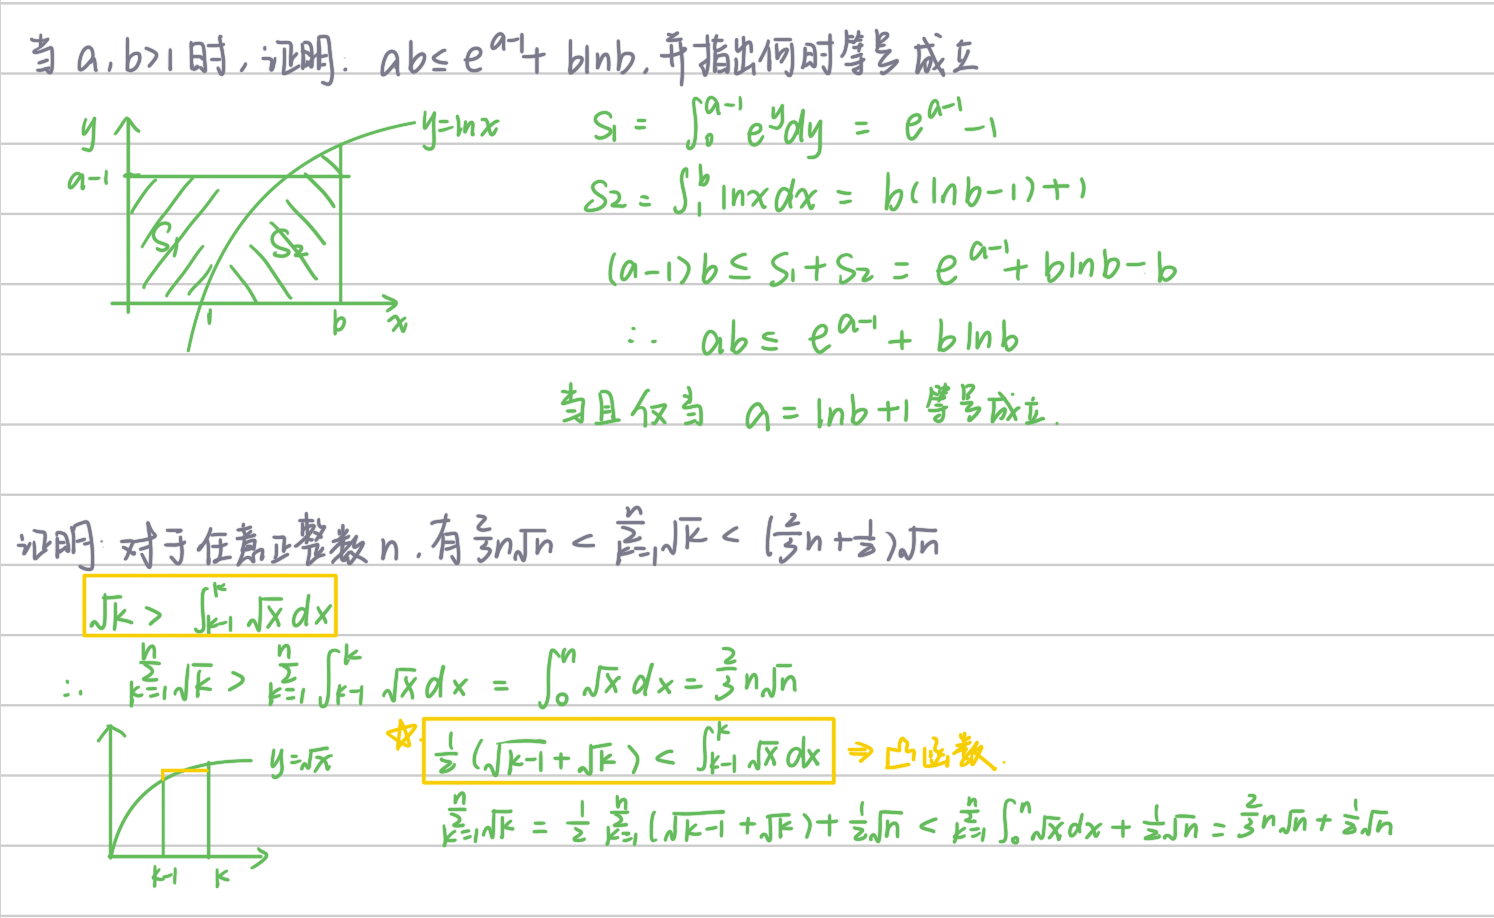 当 a,b>1时,证明: ab≤e^{a-1}+blnb,并指出何时等号成立
y
y=lnx
a-1
S₁
S₂
1
b
x
S₁ = ∫₀^{a-1} e^y dy = e^{a-1}-1
S₂ = ∫₁^b lnxdx = b(lnb-1)+1
(a-1)b ≤ S₁+S₂ = e^{a-1}+blnb-b
∴ ab ≤ e^{a-1} + blnb
当且仅当 a=lnb+1 等号成立.
证明: 对于任意正整数n,有 2/3 n√n < ∑_{k=1}^n √k < (2/3 n+1/2)√n
√k > ∫_{k-1}^k √x dx
∴ ∑_{k=1}^n √k > ∑_{k=1}^n ∫_{k-1}^k √x dx = ∫₀^n √x dx = 2/3 n√n
y=√x
k-1
k
☆. 1/2 (√k-1+√k) < ∫_{k-1}^k √x dx ⇒ 凸函数.
∑_{k=1}^n √k = 1/2 ∑_{k=1}^n (√k-1+√k)+1/2√n < ∑_{k=1}^n ∫₀^n √x dx + 1/2√n = 2/3 n√n + 1/2√n